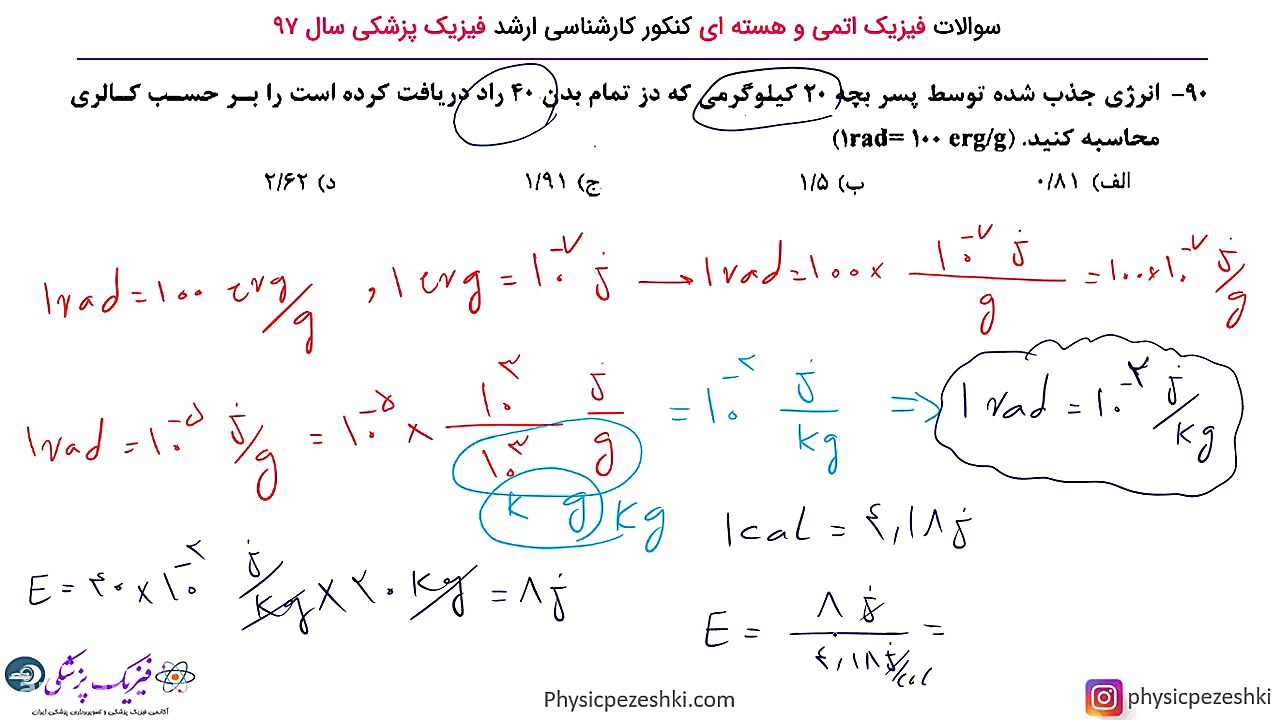 سوالات فیزیک اتمی و هسته ای کنکور کارشناسی ارشد فیزیک پزشکی سال ۹۷
۹۰- انرژی جذب شده توسط پسر بچه ۲۰ کیلوگرمی که دز تمام بدن ۴۰ راد دریافت کرده است را بـر حسـب کـالری
محاسبه کنید. (۱rad= ۱۰۰ erg/g)
الف) ۰/۸۱ ب) ۱/۵ ج) ۱/۹۱ د) ۲/۶۲
1rad = 100 erg/g , 1 erg = 10⁻⁷ j → 1rad = 100 × 10⁻⁷ j / g = 100 × 10⁻⁷ j/g
1rad = 10⁻⁵ j/g = 10⁻⁵ × 10³ j / 10³ g = 10⁻² j / kg ⇒ 1 rad = 10⁻² j/kg
k g kg
1cal = ۴,۱۸ j
E = ۴۰ × 10⁻² j/kg × ۲۰ kg = ۸ j
E = ۸ j / ۴,۱۸ j/cal =
فیزیک پزشکی
آکادمی فیزیک پزشکی و تصویربرداری پزشکی ایران
Physicpezeshki.com
physicpezeshki